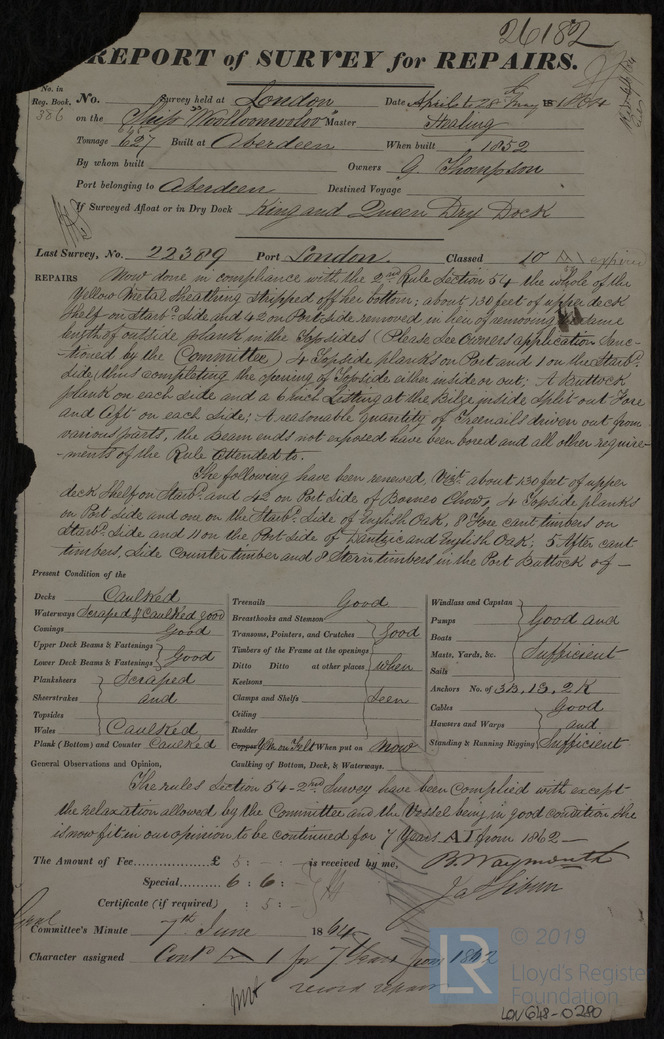 26182
REPORT of SURVEY for REPAIRS.
No. in
Reg. Book.
386
No. Survey held at London Date April 6 to 28 May 1864
on the Ship "Woolloomooloo" Master Stealing
Tonnage 627 Built at Aberdeen When built 1852
By whom built Owners G Thompson
Port belonging to Aberdeen Destined Voyage
If Surveyed Afloat or in Dry Dock King and Queen Dry Dock
Last Survey, No. 22389 Port London. Classed 10 A expired
REPAIRS Now done in compliance with the 2nd Rule Section 54 the whole of the
Yellow Metal Sheathing stripped off her bottom; about 130 feet of upper deck
Shelf on Starbd. Side and 42 on Port Side removed in lieu of removing same
length of outside plank in the Topsides (Please see Owners application Sanc-
-tioned by the Committee) 4 Topside planks on Port and 1 on the Starbd.
Side, thus completing the opening of Topside either inside or out; A Buttock
plank on each side and a 6 inch Listing at the Bilge inside split out Fore
and Aft on each side; A reasonable quantity of Treenails driven out from
various parts, the Beam ends not exposed have been bored and all other require-
-ments of the Rule attended to.
The following have been renewed, Vizt. about 130 feet of upper
deck Shelf on Starbd. and 42 on Port Side of Borneo Chow, 4 Topside planks
on Port Side and one on the Starbd. Side of English Oak, 8 Fore cant timbers on
Starbd. Side and 11 on the Port Side of Dantzic and English Oak; 5 After cant
timbers, Side Counter timber and 8 Stern timbers in the Port Buttock of —
Present Condition of the
Decks Caulked
Waterways Scraped & Caulked good
Comings Good
Upper Deck Beams & Fastenings
Lower Deck Beams & Fastenings Good
Planksheers Scraped
Sheerstrakes and
Topsides
Wales Caulked
Plank (Bottom) and Counter Caulked
Treenails Good
Breasthooks and Stemson
Transoms, Pointers, and Crutches Good
Timbers of the Frame at the openings
Ditto Ditto at other places when
Keelsons
Clamps and Shelfs seen
Ceiling
Rudder
Copper YM on Felt When put on Now
Caulking of Bottom, Deck, & Waterways.
Windlass and Capstan
Pumps Good and
Boats
Masts, Yards, &c. Sufficient
Sails
Anchors No. of 3B, 1S, 2K
Cables Good
Hawsers and Warps and
Standing & Running Rigging Sufficient
General Observations and Opinion,
The rules Section 54 - 2nd Survey have been complied with except
the relaxation allowed by the Committee and the Vessel being in good condition She
is now fit in our opinion to be continued for 7 Years A I from 1862 —
The Amount of Fee £ 5 : - : - is received by me,
B. Waymouth
Special 6 : 6 : -
Certificate (if required) : 5 : -
Committee's Minute 7th June 1864
Character assigned Contd A 1 for 7 Years from 1862
record repairs
LR
© 2019
Lloyd's Register
Foundation
LON 648-0280